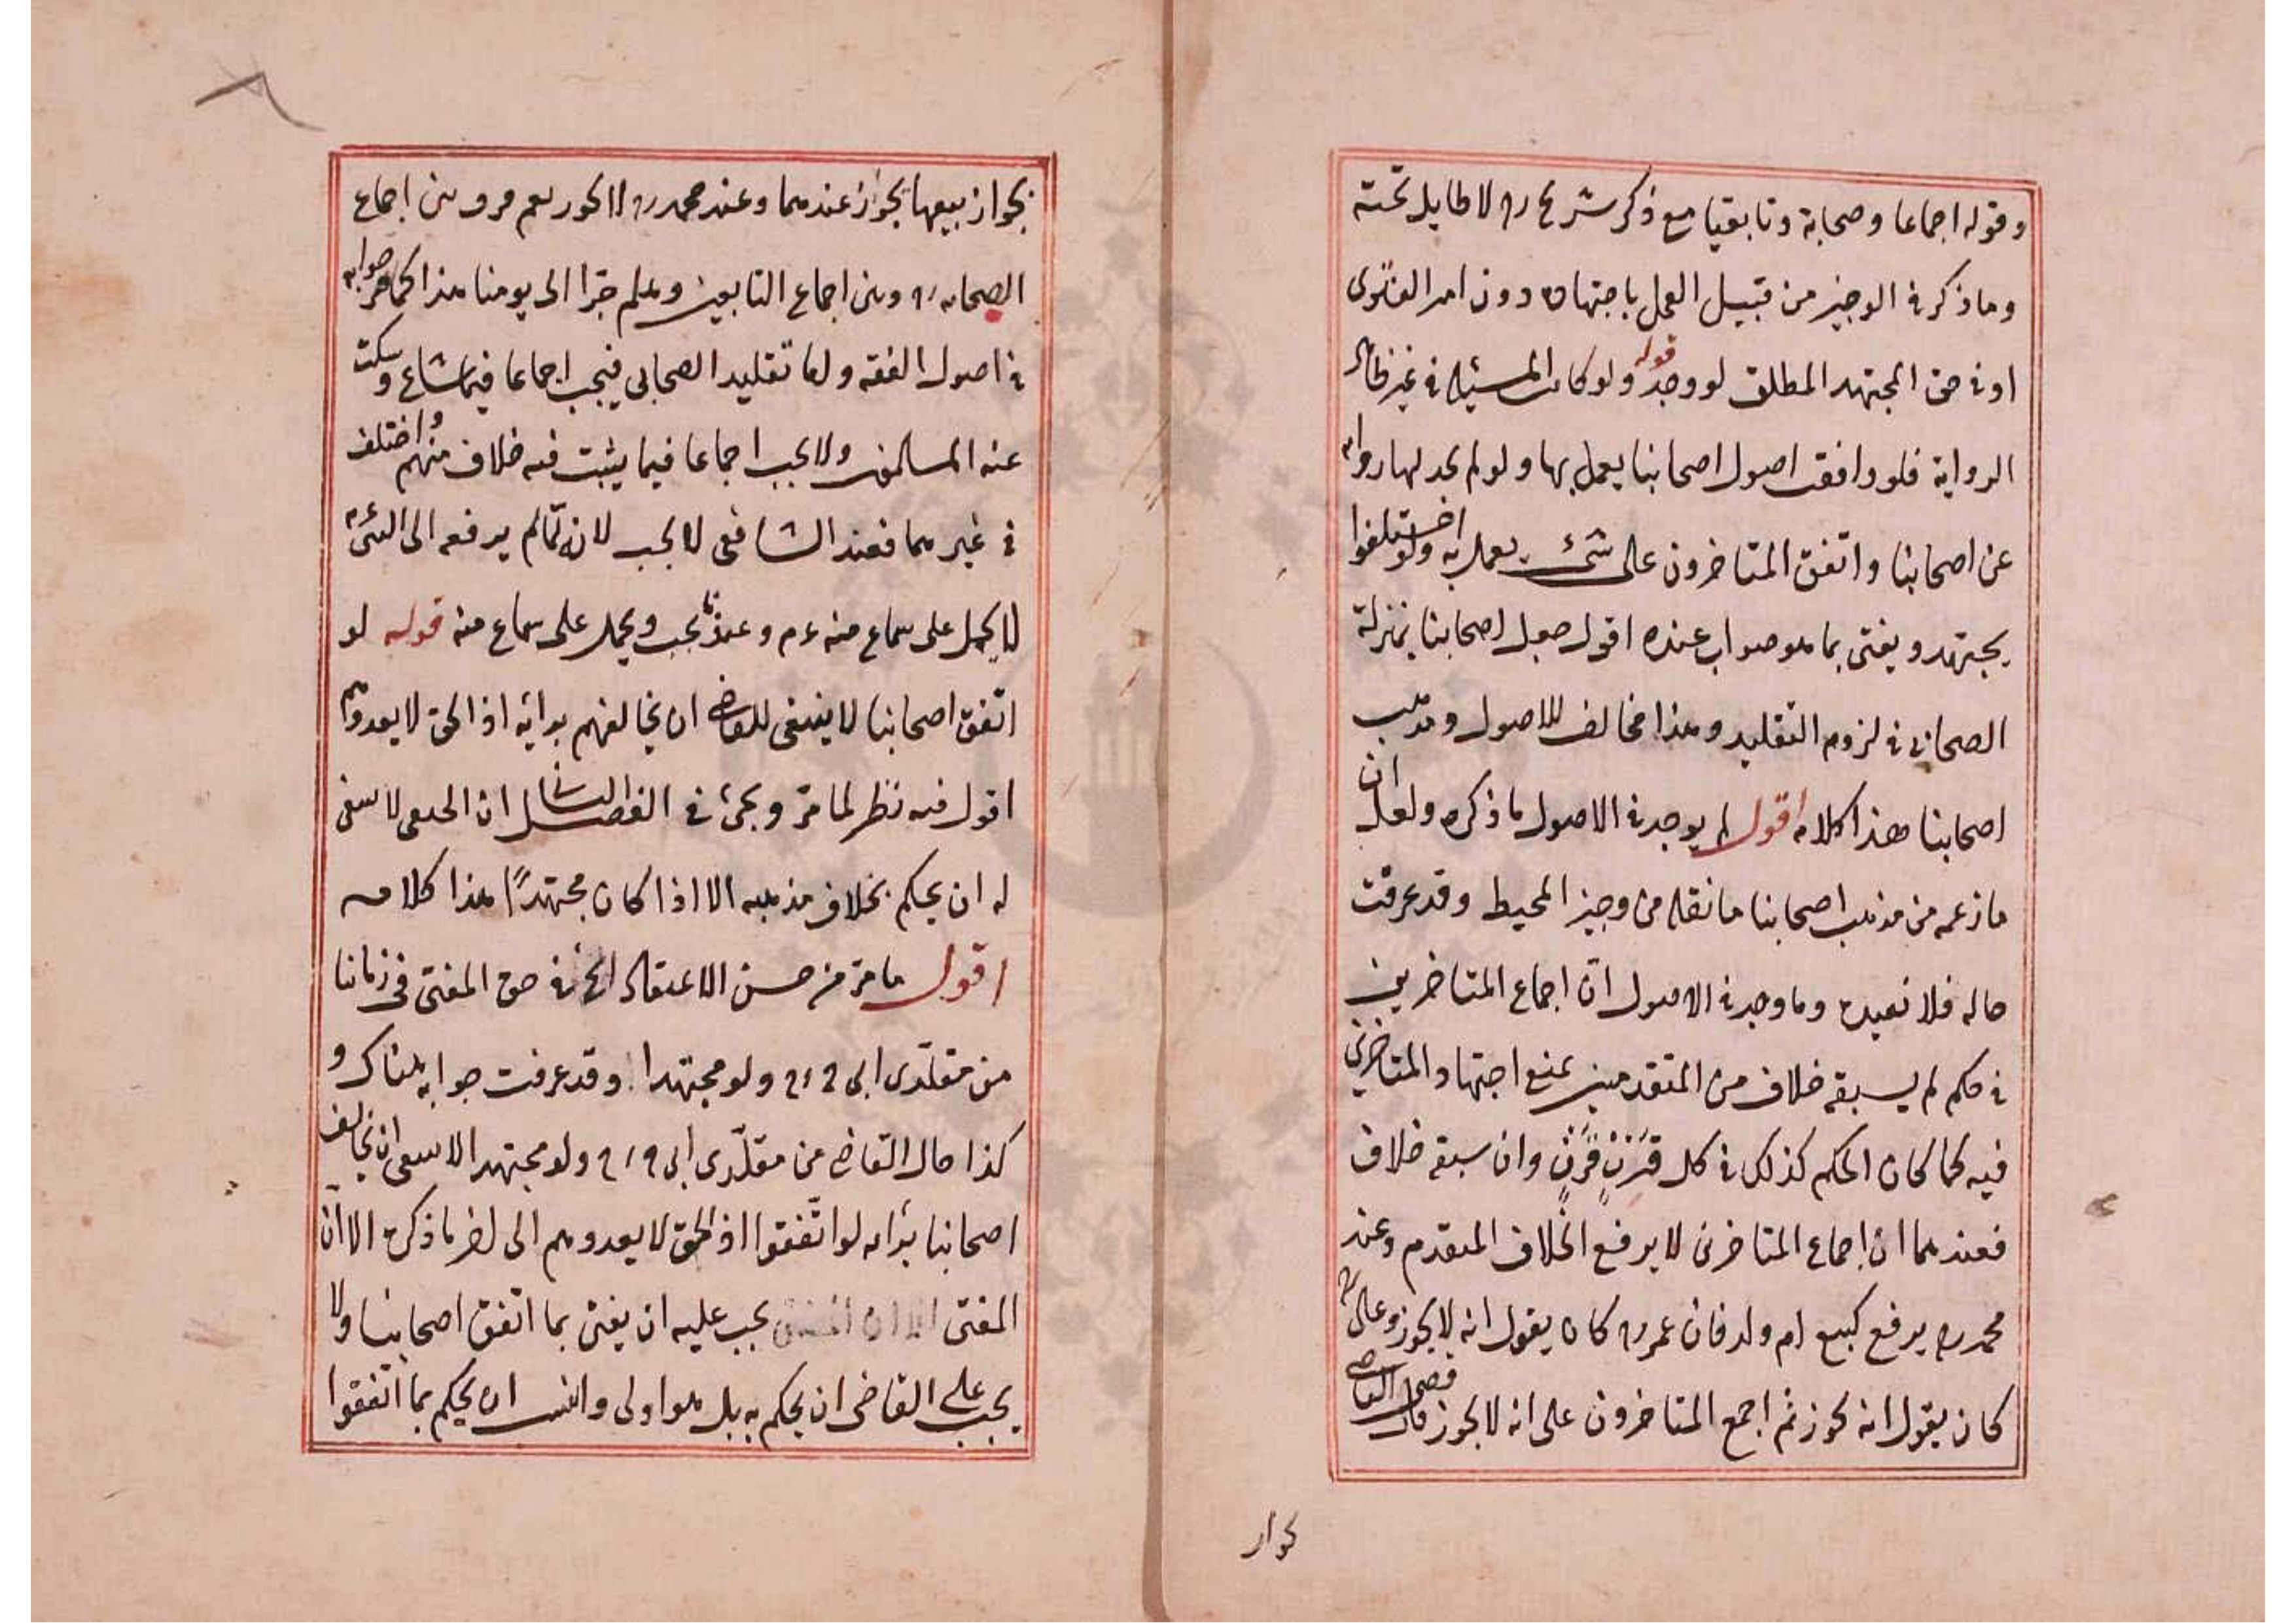 وقوله اجماعا وصحابة وتابقيا مع ذكر شريح ره لا طايل تحته
وما ذكر في الوجيز من قبيل العمل باجتهاده دون امر الفتوى
او في حق المجتهد المطلق لو وجد قوله ولو كانت المسئلة في غير ظاهر
الرواية فلو وافقت اصول اصحابنا يعمل بها ولو لم يجد لها رواية
عن اصحابنا واتفق المتاخرون على شئ يعمل به ولو اختلفوا
يجتهد ويفتى بما هو صواب عنده اقول جعل اصحابنا بمنزلة
الصحابى في لزوم التقليد وهذا مخالف للاصول ومذهب
اصحابنا هذا كلامه اقول لم يوجد في الاصول ما ذكره ولعل ان
ما زعمه من مذهب اصحابنا ما نقله من وجيز المحيط وقد عرفت
حاله فلا نعيده وما وجد في الاصول ان اجماع المتاخرين
في حكم لم يسبقه خلاف من المتقدمين يمنع اجتهاد المتاخرين
فيه كما كان الحكم كذلك في كل قرن قرن وان سبقه خلاف
فعندهما ان اجماع المتاخرين لا يرفع الخلاف المتقدم وعند
محمد ره يرفع كبيع ام ولد فان عمر ره كان يقول انه لا يجوز وعلى ره
كان يقول انه يجوز ثم اجمع المتاخرون على انه لا يجوز فان قضى القاضى
بجواز
بجواز بيعها يجوز عندهما وعند محمد ره لا يجوز نعم فرق بين اجماع
الصحابه ره وبين اجماع التابعين وهلم جرا الى يومنا هذا كما مر جوابه
في اصول الفقه واما تقليد الصحابى فيجب اجماعا فيما شاع وسكت
عنه المسالمون ولا يجب اجماعا فيما يثبت فيه خلاف منهم واختلف
في غيرهما فعند الشافعى لا يجب لانه لما لم يرفعه الى النبى ءم
لا يحمل على سماع منه ءم وعندنا يجب ويحمل على سماع منه قوله لو
اتفق اصحابنا لا ينبغى للقاضى ان يخالفهم برأيه اذ الحق لا يعدوهم
اقول فيه نظر لما مر ويجئ في الفصل الثانى ان الحنفى لا ينبغى
له ان يحكم بخلاف مذهبه الا اذا كان مجتهدًا هذا كلامه
اقول ما مر من حسن الاعتقاد الخ في حق المفتى فى زماننا
من مقلدى ابى ح ره ولو مجتهدا وقد عرفت جوابه هناك و
كذا حال القاضى من مقلدى ابى ح ره ولو مجتهدا لا ينبغى ان يخالف
اصحابنا برأيه لو اتفقوا اذ الحق لا يعدوهم الى اخر ما ذكره الا ان
المفتى يجب عليه ان يفتى بما اتفق اصحابنا ولا
يجب على القاضى ان يحكم به بل هو اولى وانسب ان يحكم بما اتفقوا